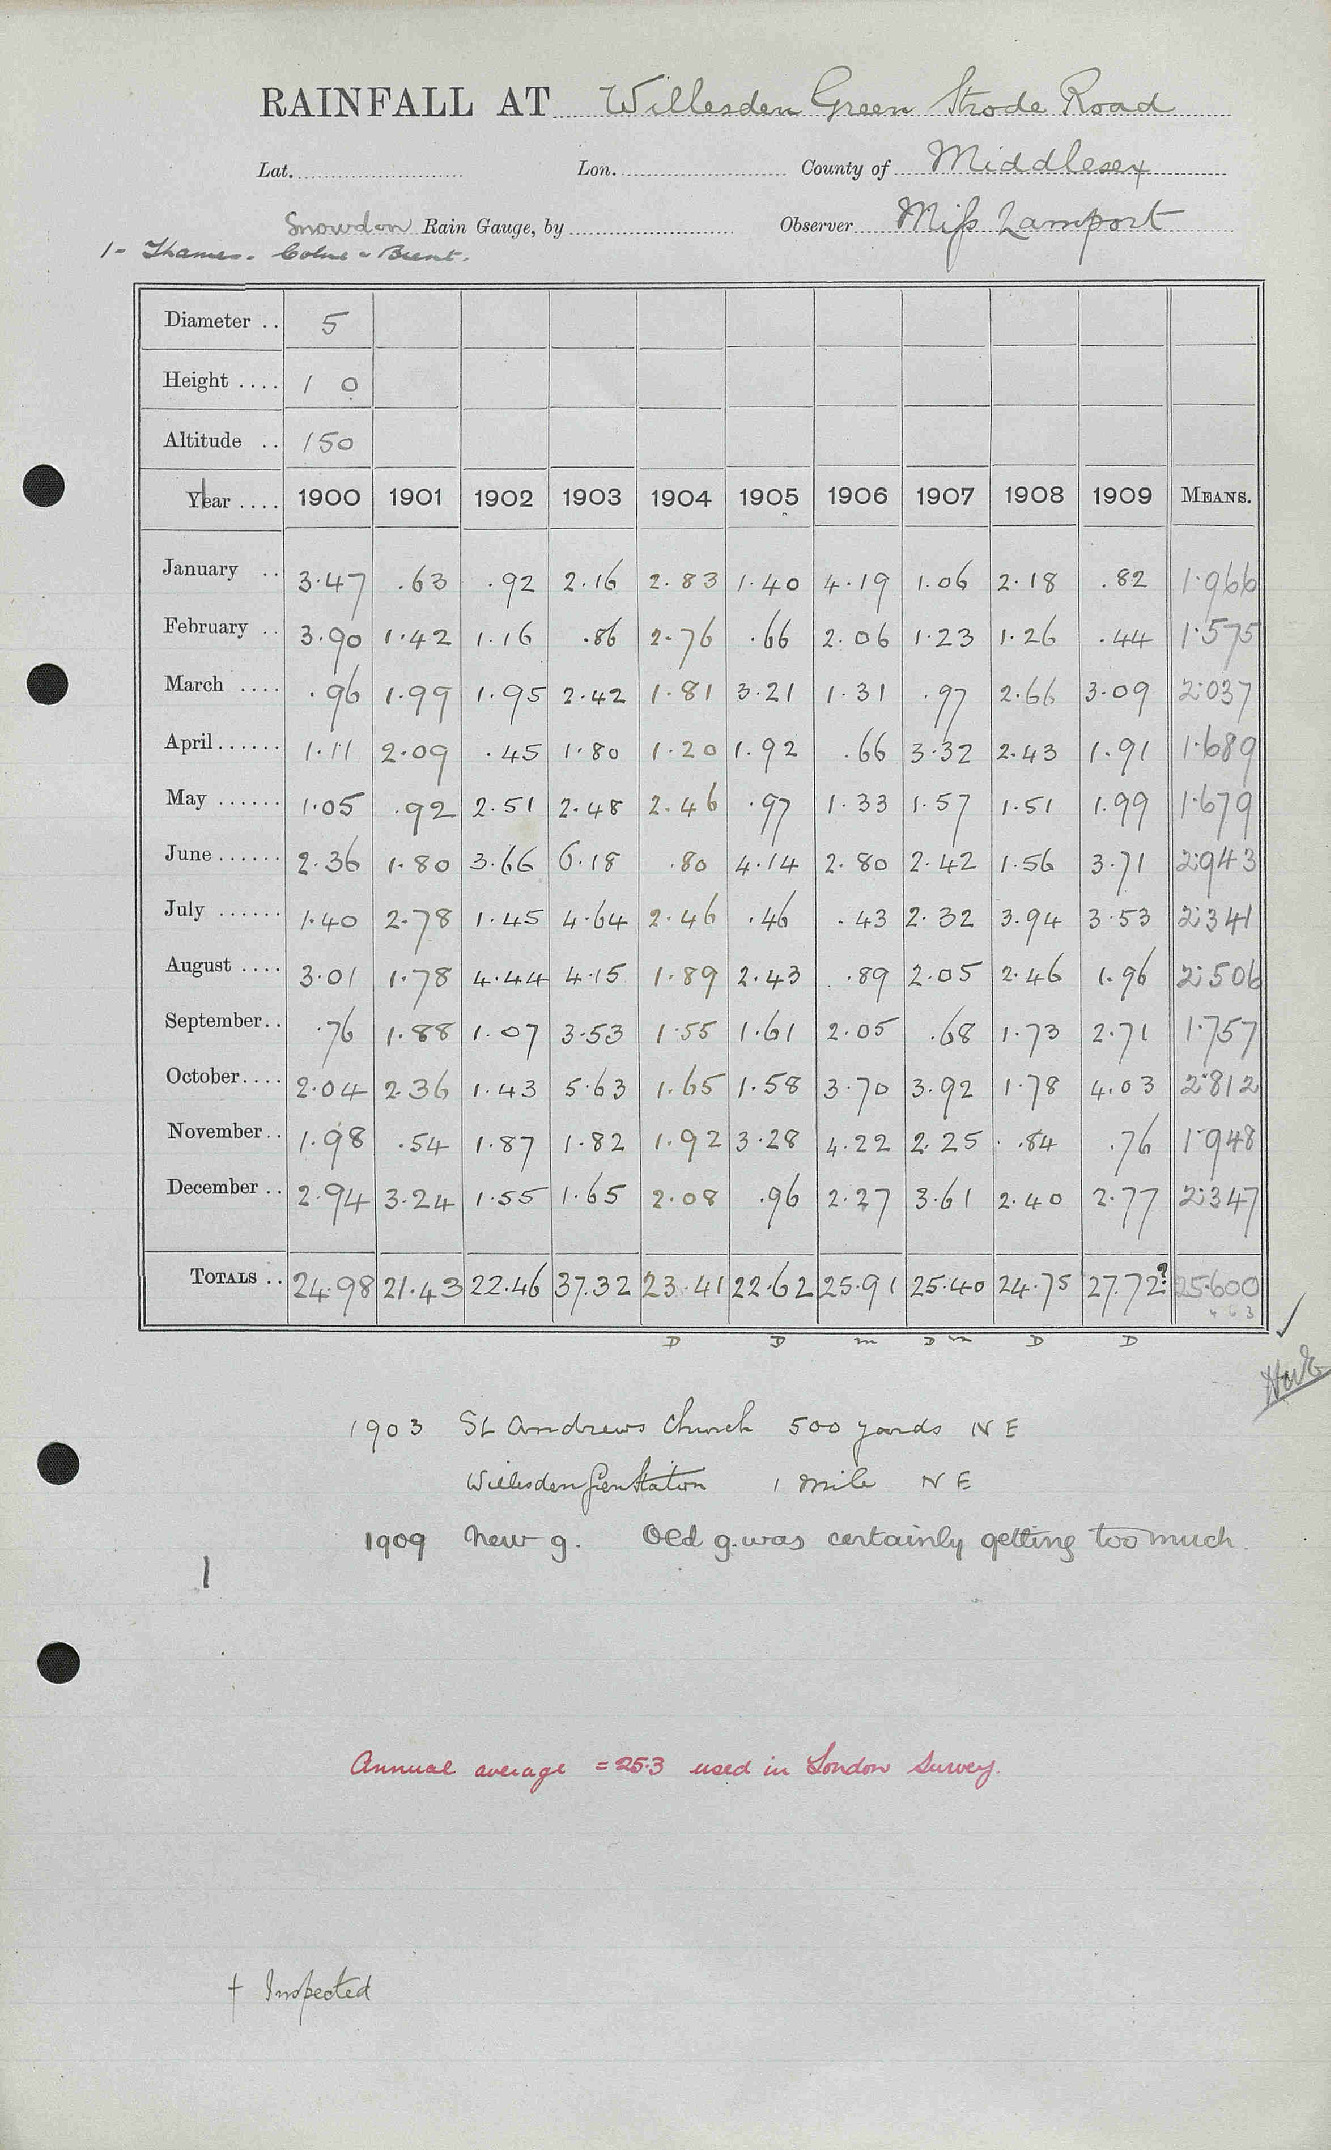 RAINFALL AT Willesden Green Strode Road
Lat. Lon. County of Middlesex
Snowdon Rain Gauge, by Observer Miss Lamport
1- Thames. Colne & Brent.
Diameter .. 5
Height .... 1 0
Altitude .. 150
Year .... 1900 1901 1902 1903 1904 1905 1906 1907 1908 1909 MEANS.
January .. 3.47 .63 .92 2.16 2.83 1.40 4.19 1.06 2.18 .82 1.966
February .. 3.90 1.42 1.16 .86 2.76 .66 2.06 1.23 1.26 .44 1.575
March .... .96 1.99 1.95 2.42 1.81 3.21 1.31 .97 2.66 3.09 2.037
April...... 1.11 2.09 .45 1.80 1.20 1.92 .66 3.32 2.43 1.91 1.689
May ...... 1.05 .92 2.51 2.48 2.46 .97 1.33 1.57 1.51 1.99 1.679
June...... 2.36 1.80 3.66 6.18 .80 4.14 2.80 2.42 1.56 3.71 2.943
July ...... 1.40 2.78 1.45 4.64 2.46 .46 .43 2.32 3.94 3.53 2.341
August .... 3.01 1.78 4.44 4.15 1.89 2.43 .89 2.05 2.46 1.96 2.506
September.. .76 1.88 1.07 3.53 1.55 1.61 2.05 .68 1.73 2.71 1.757
October.... 2.04 2.36 1.43 5.63 1.65 1.58 3.70 3.92 1.78 4.03 2.812
November.. 1.98 .54 1.87 1.82 1.92 3.28 4.22 2.25 .84 .76 1.948
December .. 2.94 3.24 1.55 1.65 2.08 .96 2.27 3.61 2.40 2.77 2.347
TOTALS .. 24.98 21.43 22.46 37.32 23.41 22.62 25.91 25.40 24.75 27.72? 25.600
4 6 3
D D m D m D D
1903 St Andrews Church 500 yards NE
Willesden Green Station 1 mile NE
1909 New g. Old g. was certainly getting too much.
1
Annual average = 25.3 used in London Survey.
† Inspected